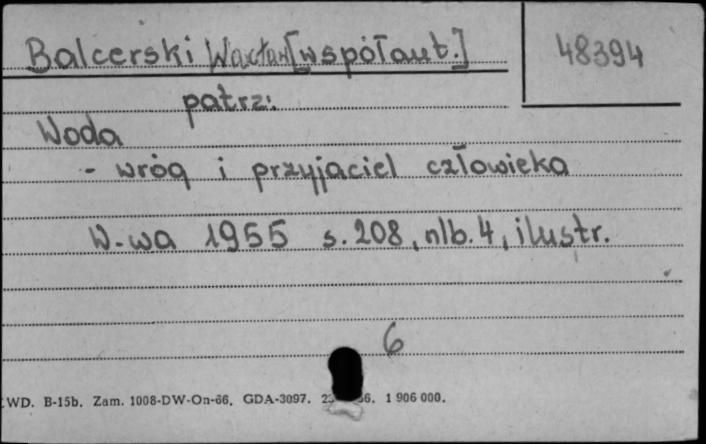 Balcerski Wacław [współaut.]
48394
patrz:
Woda
- wróg i przyjaciel człowieka
W-wa 1955 s. 208, nlb. 4, ilustr.
6
WD. B-15b. Zam. 1008-DW-On-66. GDA-3097. 66. 1 906 000.